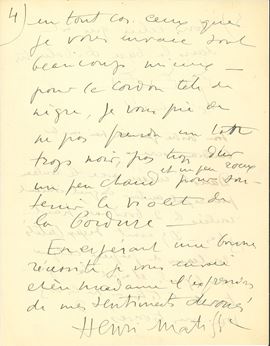 4)
en tout cas ceux que
je vous envoie sont
beaucoup mieux —
pour le cordon tête de
nègre, je vous prie de
ne pas prendre un ton
trop noir, pas trop
et un peu roux
un peu chaud pour sou-
tenir le violet de
la bordure —
En espérant une bonne
réussite je vous envoie
chère madame l'expression
de mes sentiments dévoués
Henri Matisse